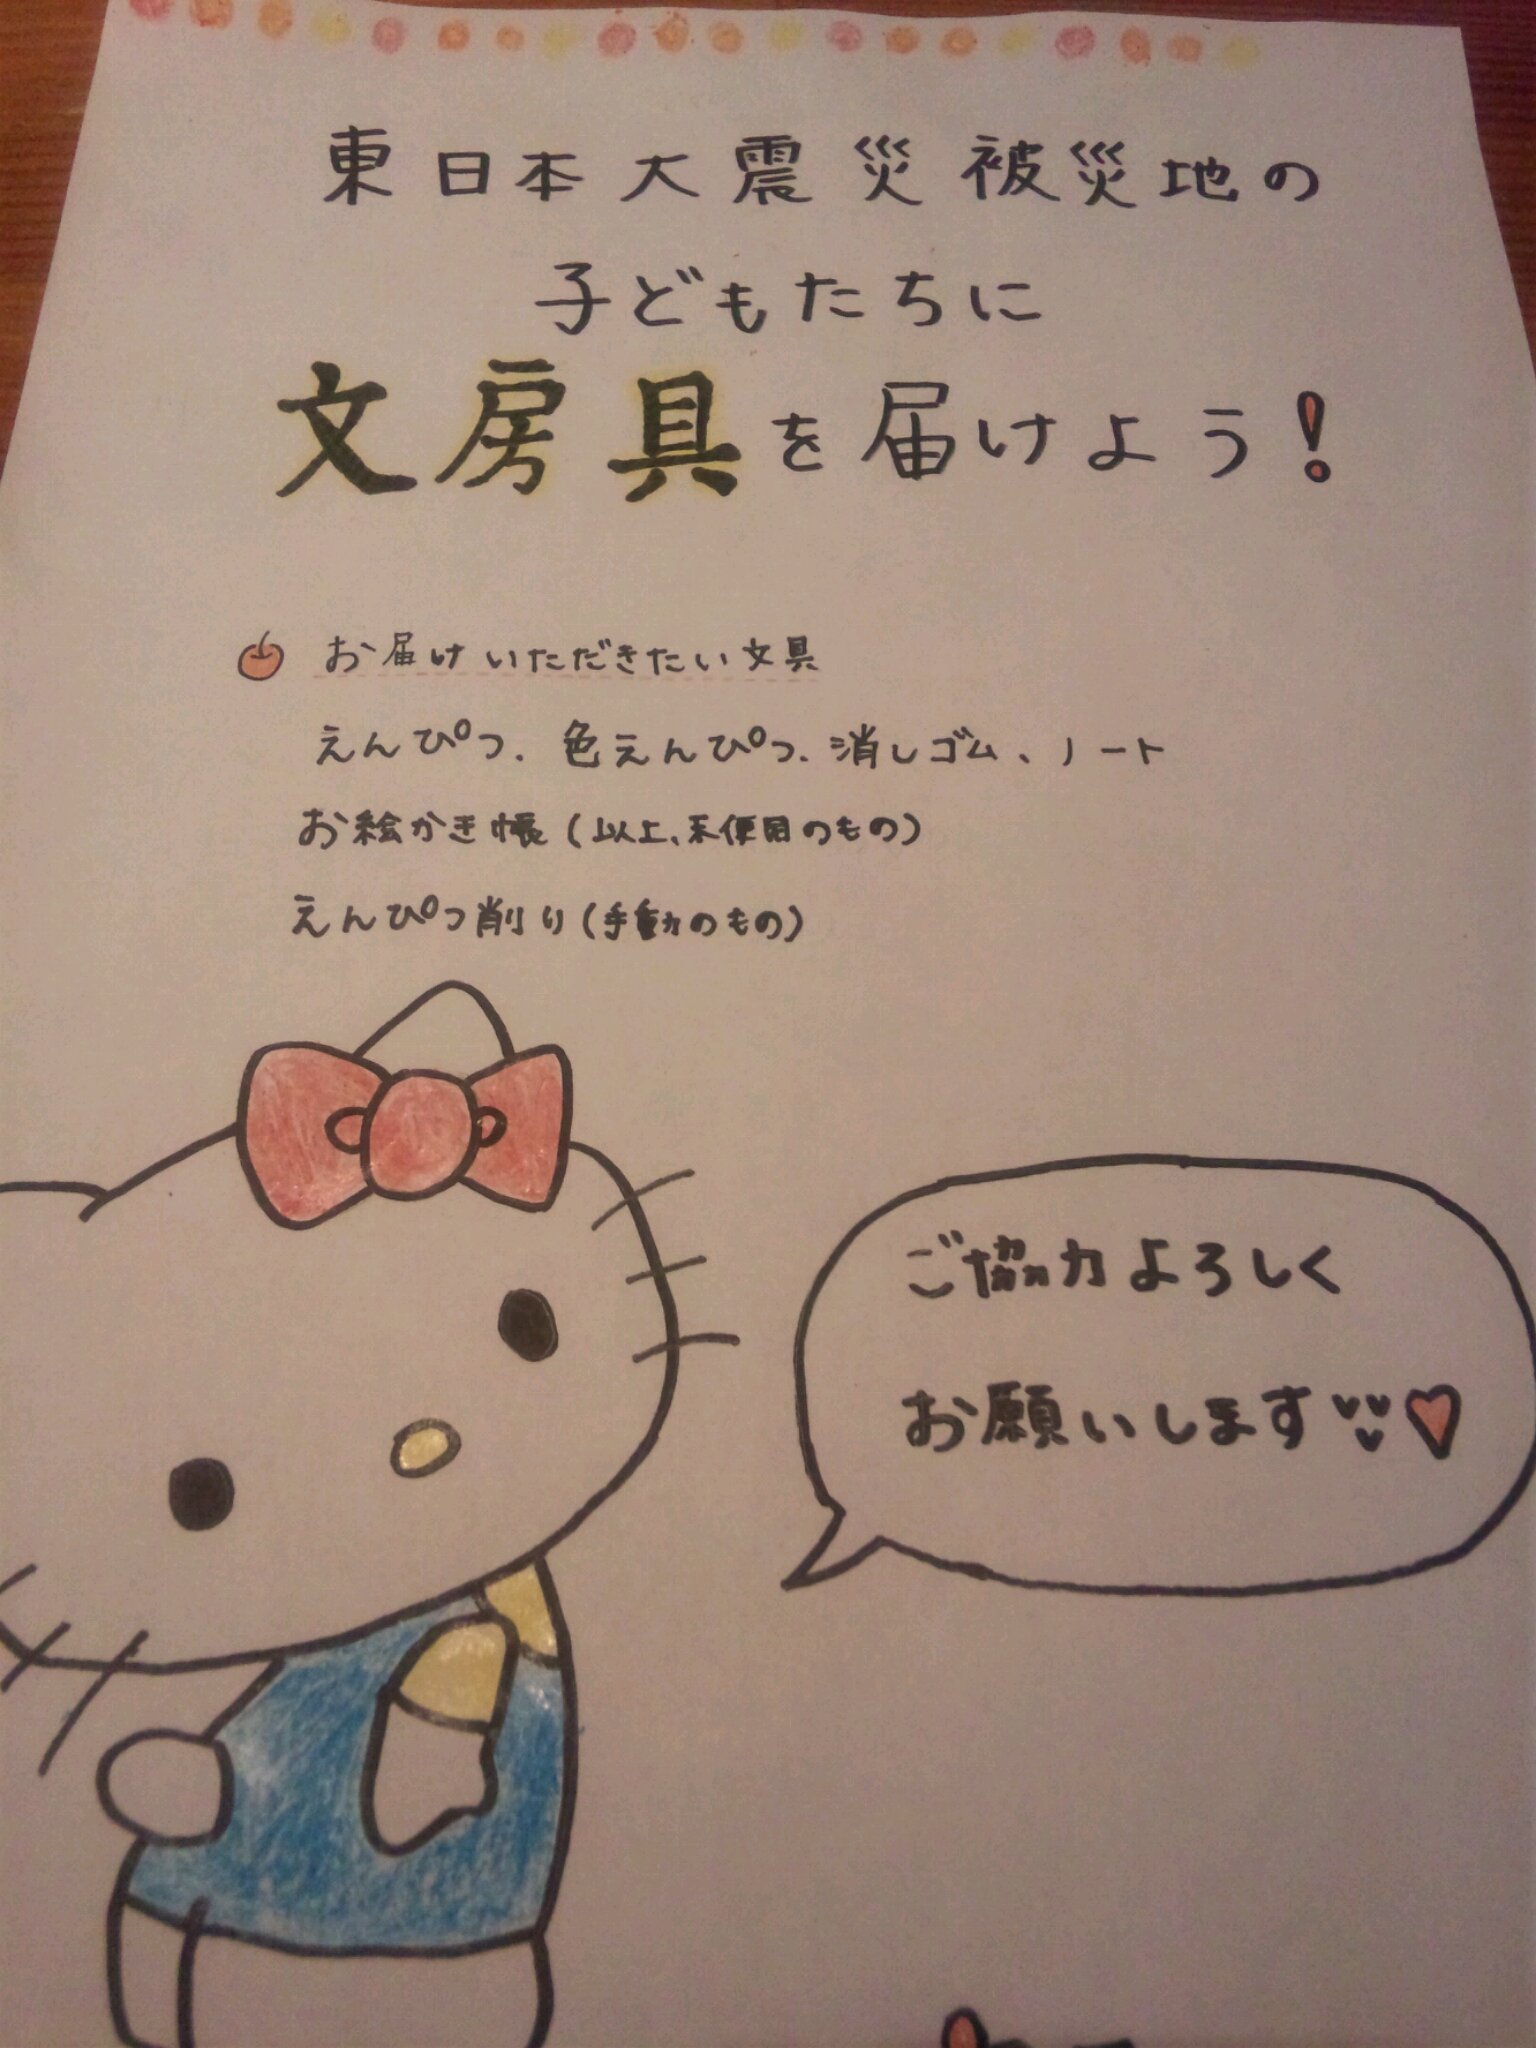 東日本大震災被災地の
子どもたちに
文房具を届けよう!
お届けいただきたい文具
えんぴつ、色えんぴつ、消しゴム、ノート
お絵かき帳(以上、未使用のもの)
えんぴつ削り(手動のもの)
ご協力よろしく
お願いします